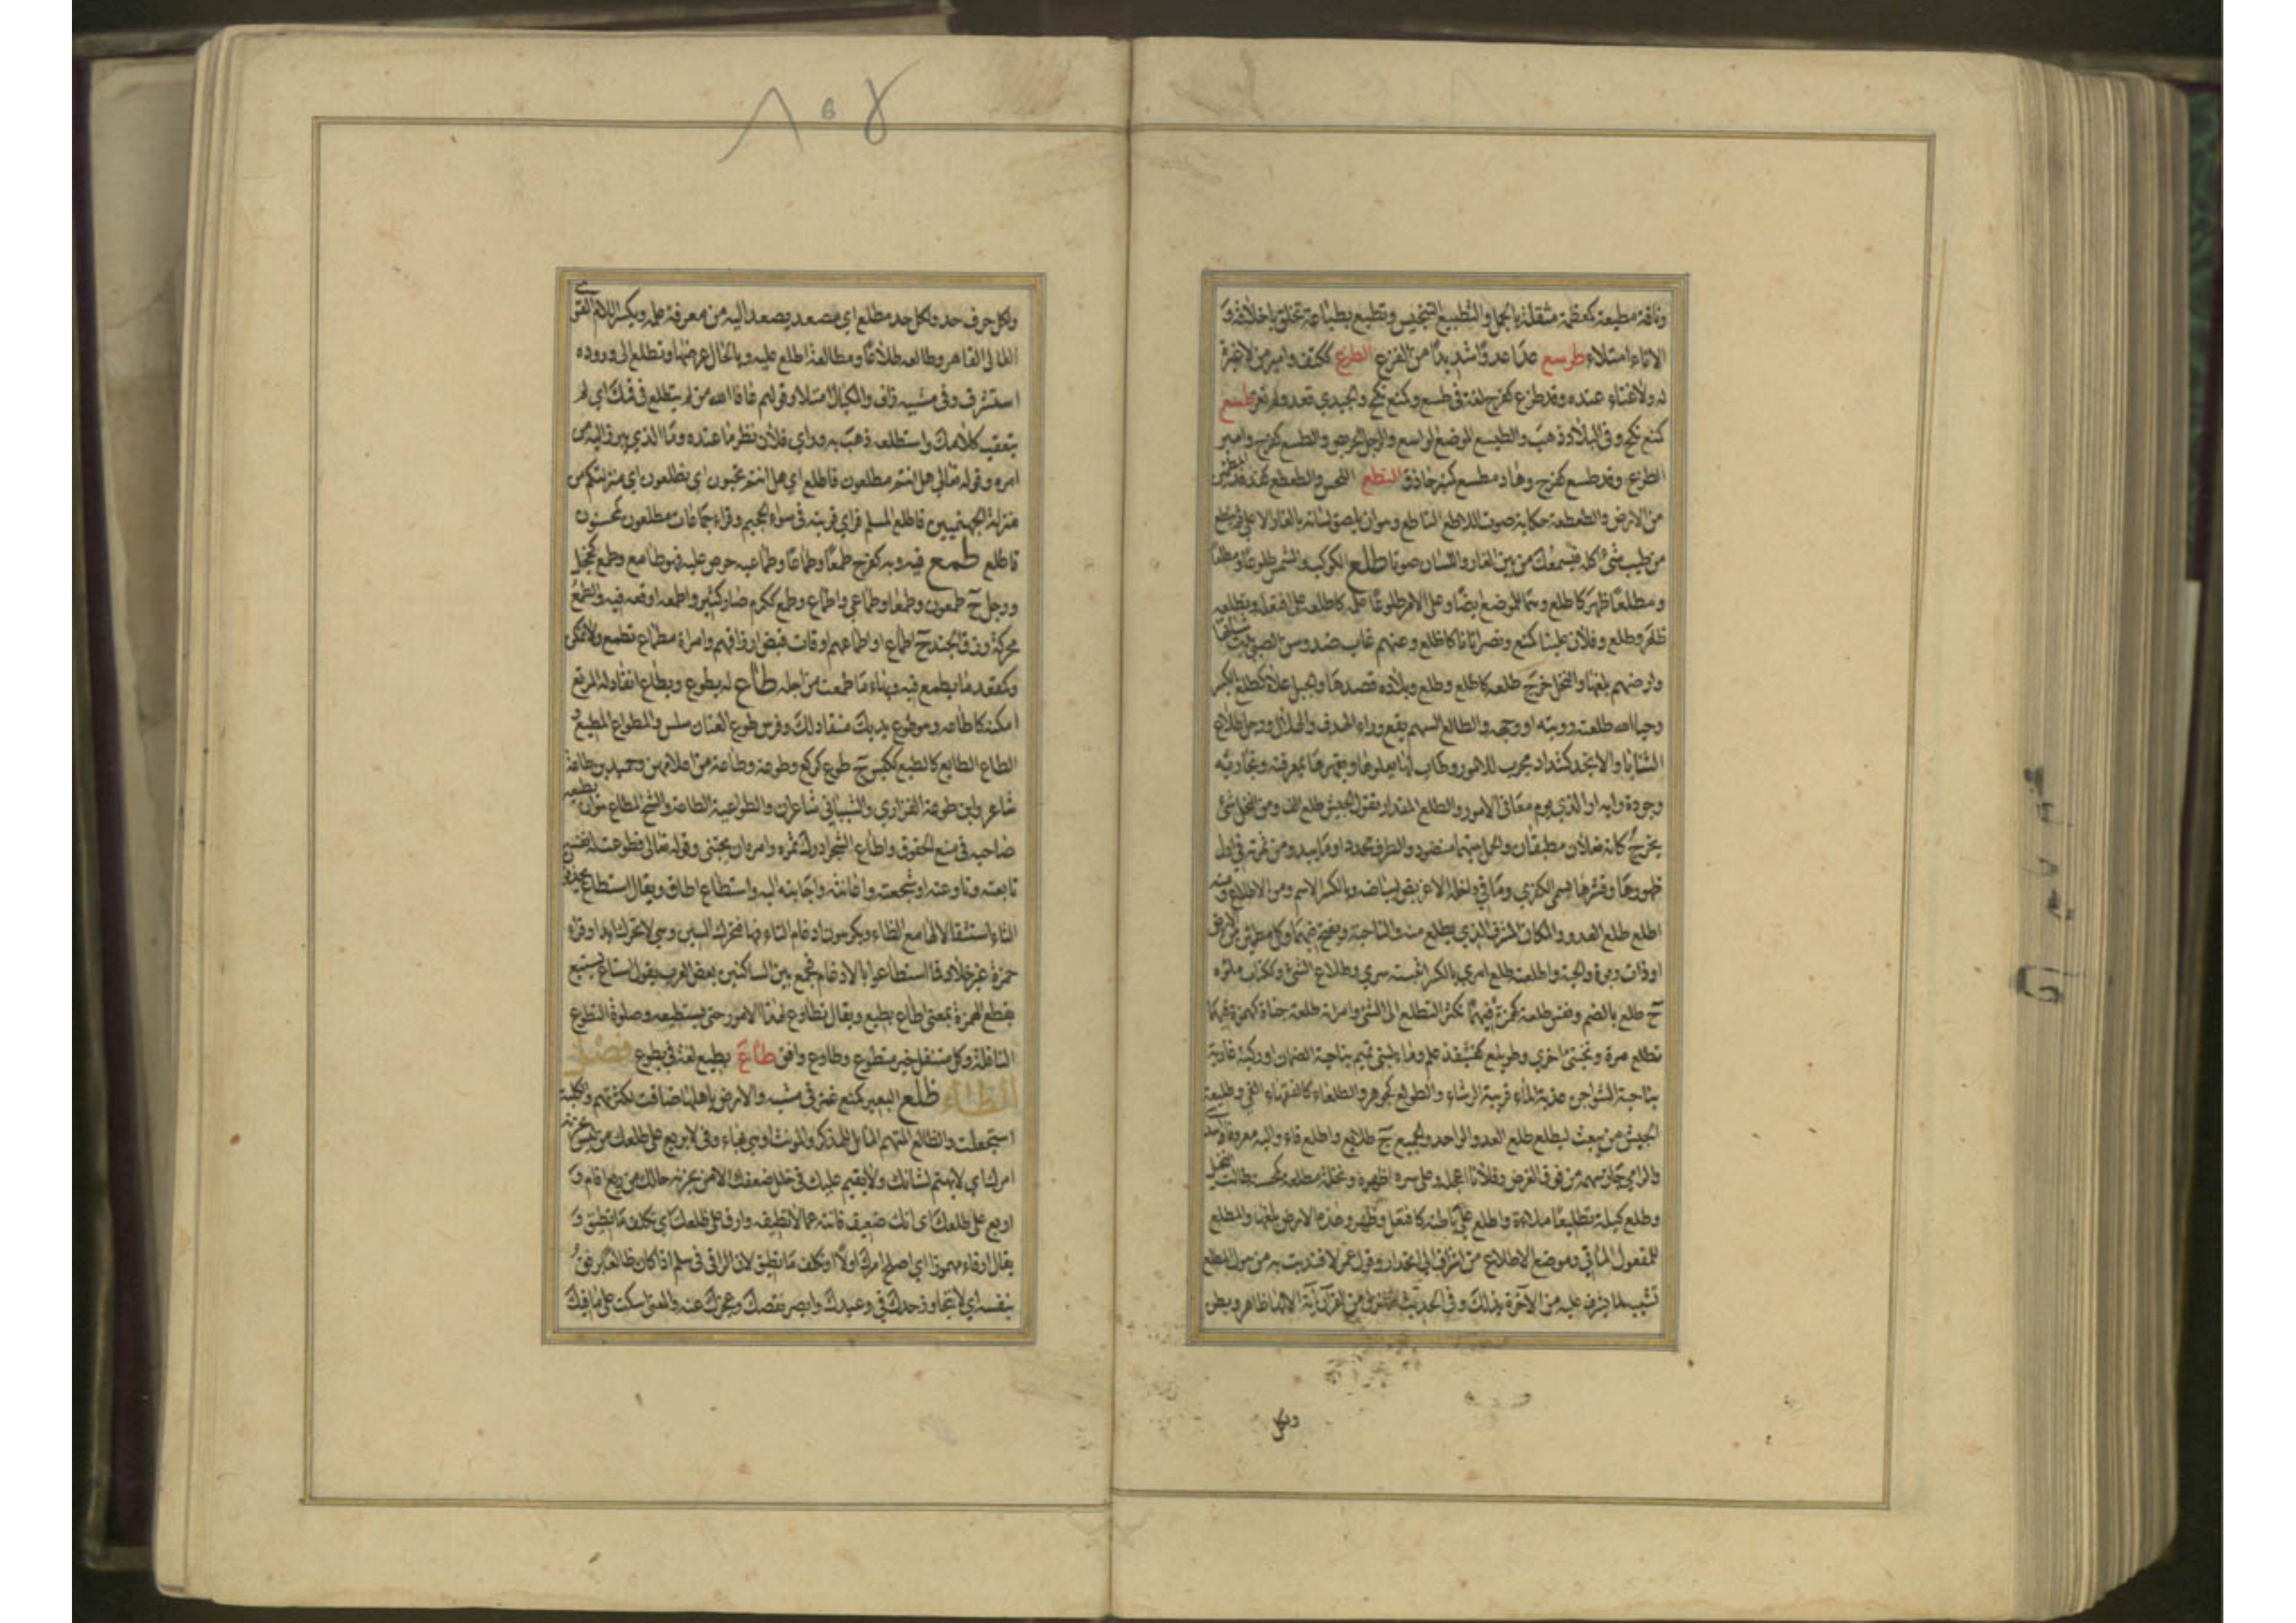 وناقة مطبعة كمعظمة مثقلة بالحمل والتطبيع التنجيس وتطبع بطباعه تخلق باخلاقه و
الاناء امتلاء طرسع عدا عدوا شديدا من الفزع الطزع ككتف وامير من لا غيرة
له ولا غناء عنده وقد طزع كفرح لغة في طسع وكمنع نكح والجندي قعد ولم يغز طسع
كمنع نكح وفي البلاد ذهب والطيسع الموضع الواسع والرجل الحريص والطسع كفرح وامير
الطزع وقد طسع كفرح وهاد مطسع كمنبر حاذق الطع اللحس والطعطع كفدفد المطمئن
من الارض والطعطعة حكاية صوت اللاطع الناطع وهو ان يلصق لسانه بالغار الاعلى ثم ينطع
من طيب شئ اكله فيسمعك من بين الغار واللسان صوتا طلع الكوكب والشمس طلوعا ومطلعا
ومطلعا ظهر كاطلع وهما للموضع ايضا وعلى الامر طلوعا علمه كاطلعه على افتعله وتطلعه
ظفر وطلع وفلان علينا كمنع ونصر اتانا كاطلع وعنهم غاب ضد وسن الصبي بدت شباتها
وارضهم بلغها والنخل خرج طلعه كاطلع وطلع وبلاده قصدها والجبل علاه كطلع بالكسر
وحيا الله طلعته رويته او وجهه والطالع السهم يقع وراء الهدف والهلال ورجل طلاع
الثنايا والانجد كشداد مجرب للامور ركاب لها يعلوها ويقهرها بمعرفته وتجاربه
وجودة رايه او الذي يوم معالي الامور والطلع المقدار تقول الجيش طلع الف ومن النخل شئ
يخرج كانه نعلان مطبقان والحمل بينهما منضود والطرف محدد او ما يبدو من ثمرته في اول
ظهورها وقشرها يسمى الكفرى وما في داخله الاغريض لبياضه وبالكسر الاسم من الاطلاع ومنه
اطلع طلع العدو والمكان المشرف الذي يطلع منه والناحية ويفتح فيهما وكل مطمئن من الارض
او ذات ربوة والحية واطلعته طلع امري بالكسر ابثثته سري وطلاع الشئ ككتاب ملؤه
ج طلع بالضم ونفس طلعة كهمزة فيهما تكثر التطلع الى الشئ وامراة طلعة خباة كهمزة فيهما
تطلع مرة وتختبئ اخرى وطويلع كقنيفذ علم وماء لبني تميم بناحية الصمان او ركية عادية
بناحية الشواجن عذبة الماء قريبة الرشاء والطولع كجوهر والطلعاء كالفقهاء القئ وطليعة
الجيش من يبعث ليطلع طلع العدو للواحد والجميع ج طلائع واطلع قاء واليه معروفا اسدى
والرامي جاز سهمه من فوق الغرض وفلانا اعجله وعلى سره اظهره ونخلة مطلعة كمحسنة طالت النخيل
وطلع كيله تطليعا ملاءه واطلع على باطنه كافتعل وظهر وهذه الارض بلغها والمطلع
للمفعول الماتي وموضع الاطلاع من اشراف الى انحدار وقول عمر لافتديت به من هول المطلع
تشبيه لما يشرف عليه من الاخرة بذلك وفي الحديث ما نزل من القران اية الا لها ظهر وبطن
ولكل
٨٥٤
ولكل حرف حد ولكل حد مطلع اي مصعد يصعد اليه من معرفة علمه وبكسر اللام القوي
العالي القاهر وطالعه طلاعا ومطالعة اطلع عليه وبالحال عرضها وتطلع الى وروده
استشرف وفي مشيه زاف والمكيال امتلا وقولهم عافا الله من لم يتطلع في فمك اي لم
يتعقب كلامك واستطلعه ذهب به وراي فلان نظر ما عنده وما الذي يبرز اليه من
امره وقوله تعالى هل انتم مطلعون فاطلع اي هل انتم تحبون ان تطلعوا اي منزلتكم من
منزلة الجهنميين فاطلع المسلم فراى قرينه في سواء الجحيم وقراء جماعات مطلعون كمحسنون
فاطلع طمع فيه وبه كفرح طمعا وطماعا وطماعية حرص عليه فهو طامع وطمع كخجل
ورجل ج طمعون وطمعاء وطماعى واطماع وطمع ككرم صار كثيره واطمعه اوقعه فيه والطمع
محركة رزق الجند ج اطماع او اطماعهم اوقات قبض ارزاقهم وامراة مطماع تطمع ولا تمكن
وكمقعد ما يطمع فيه وبهاء ما طمعت من اجله طاع له يطوع ويطاع انقاد له المرتع
امكنه كاطاعه وهو طوع يديك منقاد لك وفرس طوع العنان سلس والمطواع المطيع و
الطاع الطايع كالطيع ككيس ج طوع كركع وطوعة وطاعة من اعلامهن وحميد بن طاعة
شاعر وابن طوعة الفزاري والشيباني شاعران والطواعية الطاعة والشح المطاع هو ان يطيعه
صاحبه في منع الحقوق واطاع الشجر ادرك ثمره وامره ان يجتنى وقوله تعالى فطوعت له نفسه
تابعته وطاوعته او شجعته واعانته واجابته اليه واستطاع اطاق ويقال اسطاع بحذف
التاء استثقالا لها مع الطاء ويكرهون ادغام التاء فيها فتحرك السين وهي لا تحرك ابدا وقراء
حمزة غير خلاد فما اسطاعوا بالادغام فجمع بين الساكنين بعض العرب يقول استاع يستيع
بقطع الهمزة بمعنى اطاع يطيع ويقال تطاوع لهذا الامر حتى يستطيعه وصلوة التطوع
النافلة وكل متنفل خير متطوع وطاوع وافق طاع يطيع لغة في يطوع فصل
الظاء ظلع البعير كمنع غمز في مشيه والارض باهلها ضاقت لكثرتهم والكلبة
استجعلت والظالع المتهم المائل للمذكر والمونث او هي بهاء وفي لا يربع على ظلعك من ليس يحزنه
امرك اي لا يهتم لشانك ولا يقيم عليك في حال ضعفك الا من يحزنه حالك من ربع اقام و
اربع على ظلعك اي انك ضعيف فانته عما لا تطيقه وارق على ظلعك اي تكلف ما تطيق و
يقال ارقاء مهموزا اي اصلح امرك اولا او تكلف ما تطيق لان الراقي في سلم اذا كان ظالعا يرفق
بنفسه اي لا تجاوز حدك في وعيدك وابصر نقصك وعجزك عنه والمعنى اسكت على ما فيك